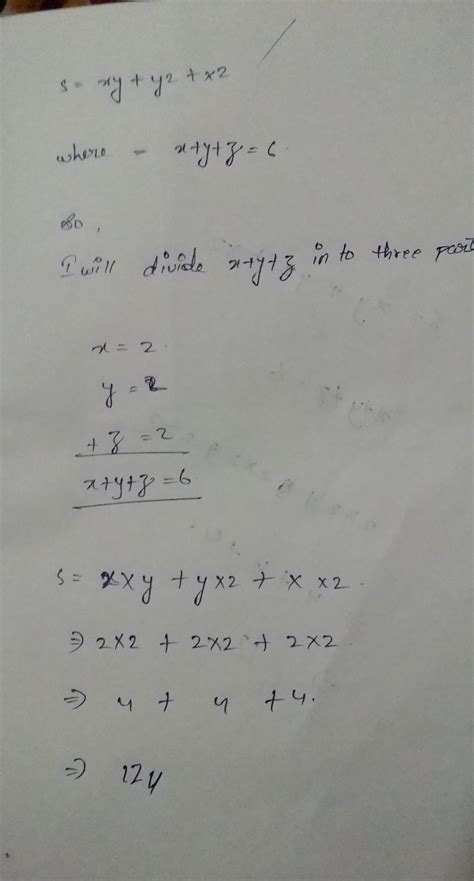 s = xy + yz + xz
where - x+y+z = 6.
so,
I will divide x+y+z in to three part
x = 2
y = 2
+ z = 2
x+y+z = 6
s = x×y + y×z + x×z.
⇒ 2×2 + 2×2 + 2×2
⇒ 4 + 4 + 4.
⇒ 12